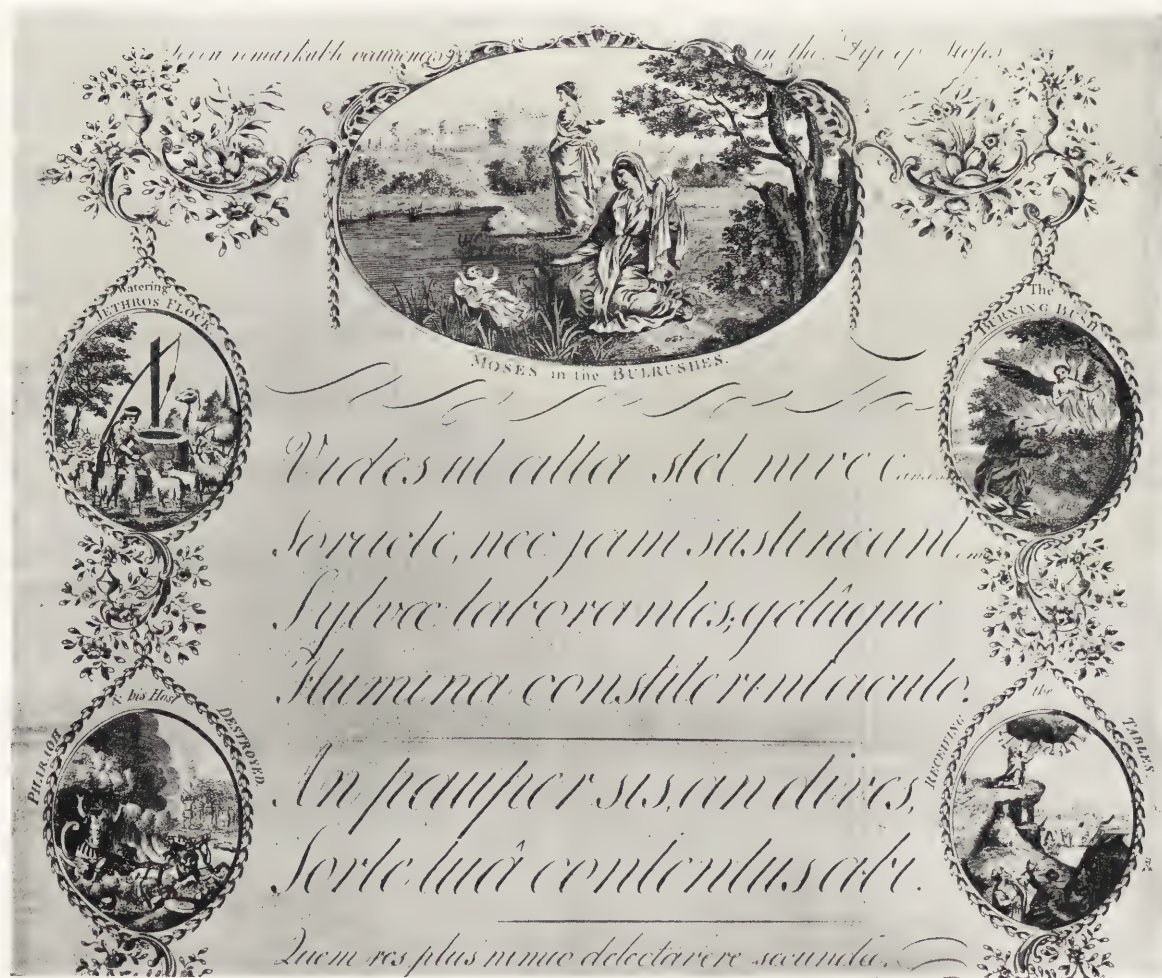 Seven remarkable occurrences in the Life of Moses
MOSES in the BULRUSHES.
Watering
JETHROS FLOCK
The
BURNING BUSH
Vides ut alta stet nive candi
Soracte, nec jam sustineant
Sylvæ laborantes; gelûque
Flumina constiterint acuto.
PHAROAH & his Host DESTROYED
RECEIVING the TABLES
An pauper sis, an dives,
Sorte tuâ contentus abi.
Quem res plus nimio delectavere secundæ,